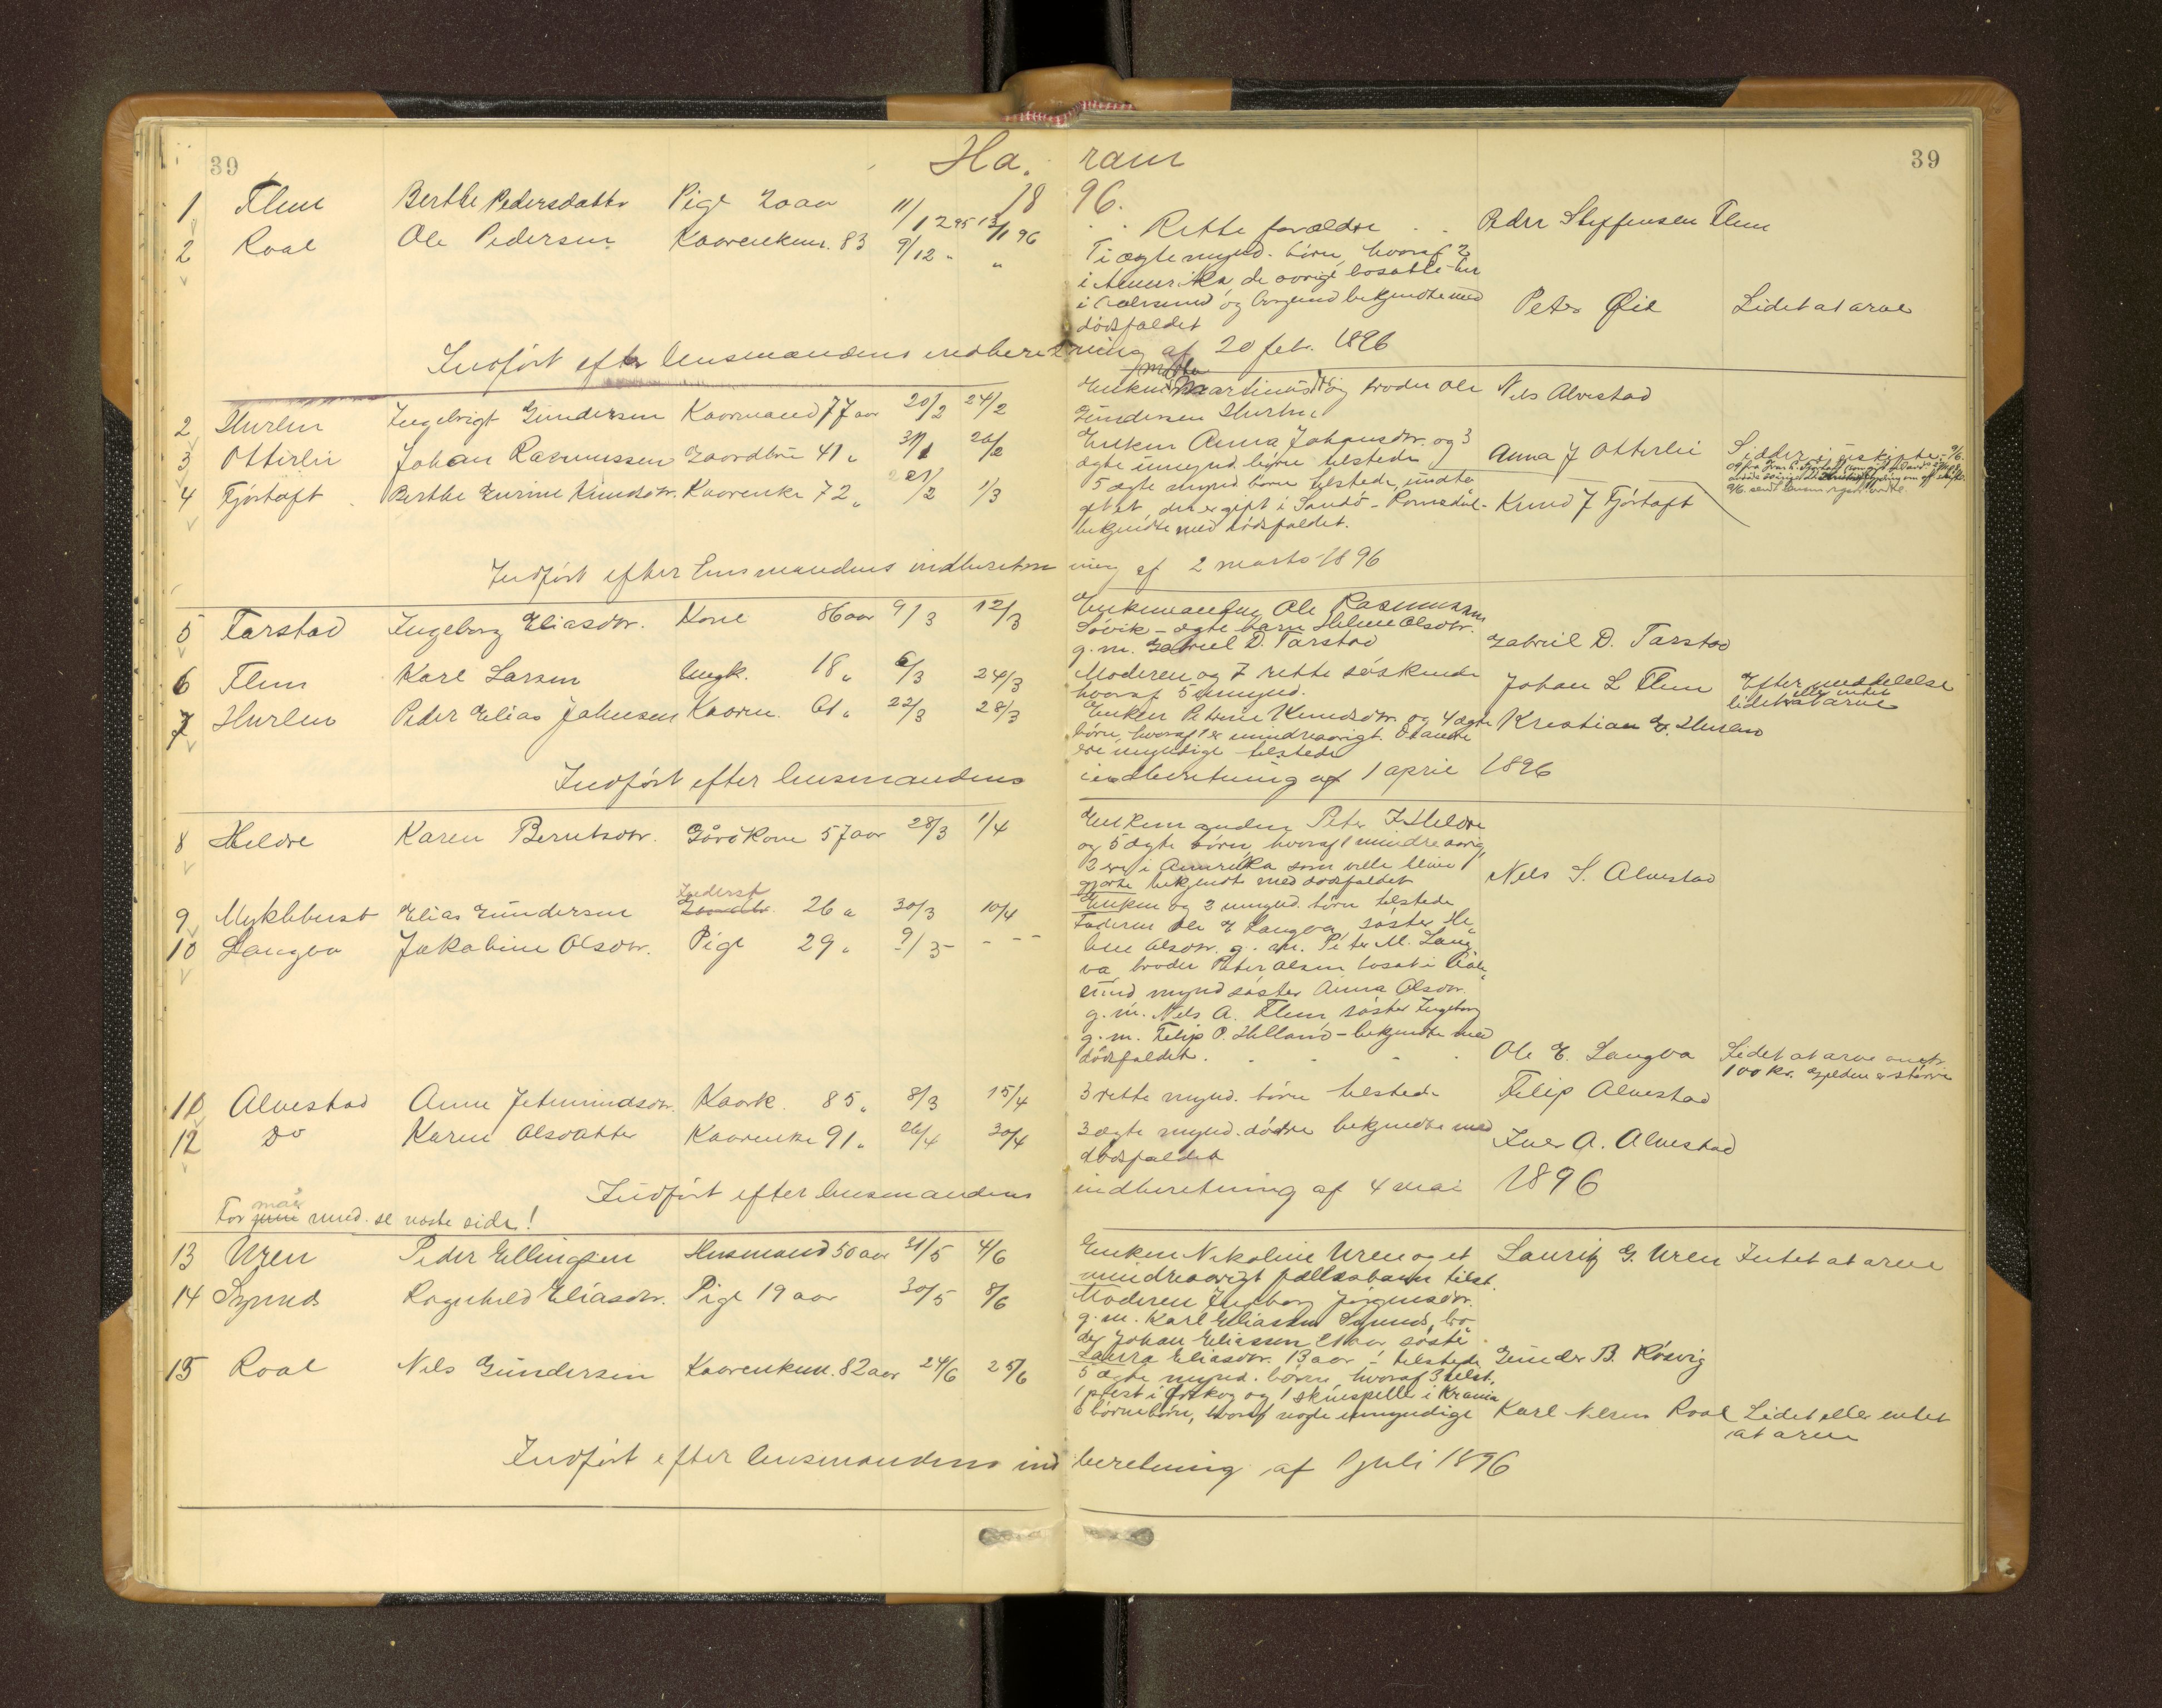 39 Ha. ram 39
18 96.
1 Flem Berthe Pedersdatter Pige 20 aar 11/12 95 13/1 96 Rette forældre Peder Steffensen Flem
2 Roal Ole Pedersen Kaarenkem. 83 9/12 " " Ti ægte mynd. børn, hvoraf 2
i Amerika, de øvrige bosatte her
i Aalesund og Borgund bekjendte med Peter Øie Lidet at arve
dødsfaldet
Indført efter lensmandens indberetning af 20 feb. 1896
2 Hurlen Ingebrigt Gundersen Kaarmand 77 aar 20/2 24/2 Enken Martha Martinusdtr og broder Ole Nils Alvestad
Gundersen Hurlen
3 Otterlei Johan Rasmussen Gaardbru 41 " 31/1 20/2 Enken Anna Johansdtr. og 3 Anna J Otterlei Sidder i uskiftet
ægte umynd. børn tilstede
4 Fjørtoft Berthe Gurine Knudsdtr. Kaarenke 72 " 21/2 1/3 5 ægte mynd. børn tilstede, undta
get et, der er gift i Sandø - Romsdal - Knud J Fjørtoft
bekjendte med dødsfaldet.
Indført efter lensmandens indberetning af 2 marts 1896
5 Tarstad Ingeborg Eliasdtr. Kone 86 aar 9/3 12/3 Enkemanden Ole Rasmussen
Søvik - ægte barn Helene Olsdtr.
g. m. Gabriel D. Tarstad Gabriel D. Tarstad
6 Flem Karl Larsen Ungk. 18 " 6/3 24/3 Moderen og 7 rette søskende Johan L Flem Efter meddelelse
hvoraf 5 umynd. lidet eller intet at arve
7 Hurlen Peder Elias Johnsen Kaarm. 61 " 22/3 28/3 Enken Petrine Knudsdtr. og 4 ægte Kristian E. Hurlen
børn, hvoraf 1 er mindreaarigt. De andre
ere myndige tilstede
Indført efter lensmandens indberetning af 1 april 1896
8 Hildre Karen Berntsdtr. Gårdkone 57 aar 28/3 1/4 Enkemanden Peter J Hildre
og 5 ægte børn, hvoraf 1 mindreaarig,
2 ere i Amerika som ville blive
gjorte bekjendt med dødsfaldet Nils S. Alvestad
9 Myklebust Elias Gundersen Inderst 26 " 30/3 10/4 Enken og 2 umynd. børn tilstede
10 Langva Jakobine Olsdtr. Pige 29 " 9/3 - - - Faderen Ole E Langva, søster He
lene Olsdtr. g. m. Peter M. Lang
va, broder Peter Olsen bosat i Aale
sund, mynd søster Anna Olsdtr.
g. m. Nils A. Flem søster Ingeborg
g. m. Filip O. Helland - bekjendte med
dødsfaldet. Ole E. Langva Lidet at arve angtr.
100 kr. Gjelden er større
11 Alvestad Anne Jetmundsdtr. Kaark. 85 " 8/3 15/4 3 rette mynd. børn tilstede Filip Alvestad
12 Do Karen Olsdatter Kaarenke 91 " 26/4 30/4 3 ægte mynd. døtre bekjendte med Iver A. Alvestad
dødsfaldet
Indført efter lensmandens indberetning af 4 mai 1896
For mai mnd. se næste side!
13 Uren Peder Ellingsen Husmand 50 aar 31/5 4/6 Enken Nikoline Uren og et Lauritz G. Uren Intet at arve
mindreaarigt fællesbarn tilst.
14 Synnes Ragnhild Eliasdtr. Pige 19 aar 30/5 8/6 Moderen Ingeborg Jørgensdtr.
g. m. Karl Eliassen Synnes, bro
der Johan Eliassen 21 aar søster
Laura Eliasdtr. 13 aar - tilstede Gunder B. Røsvig
15 Roal Nils Gundersen Kaarenkem. 82 aar 24/6 25/6 5 ægte mynd. børn, hvoraf 3 tilst.
1 prest i Ørskog og 1 skuespiller i Krania
6 børnebørn, hvoraf nogle umyndige Karl Nilsen Roal Lidet eller intet
at arve
Indført efter lensmandens indberetning af 1 juli 1896